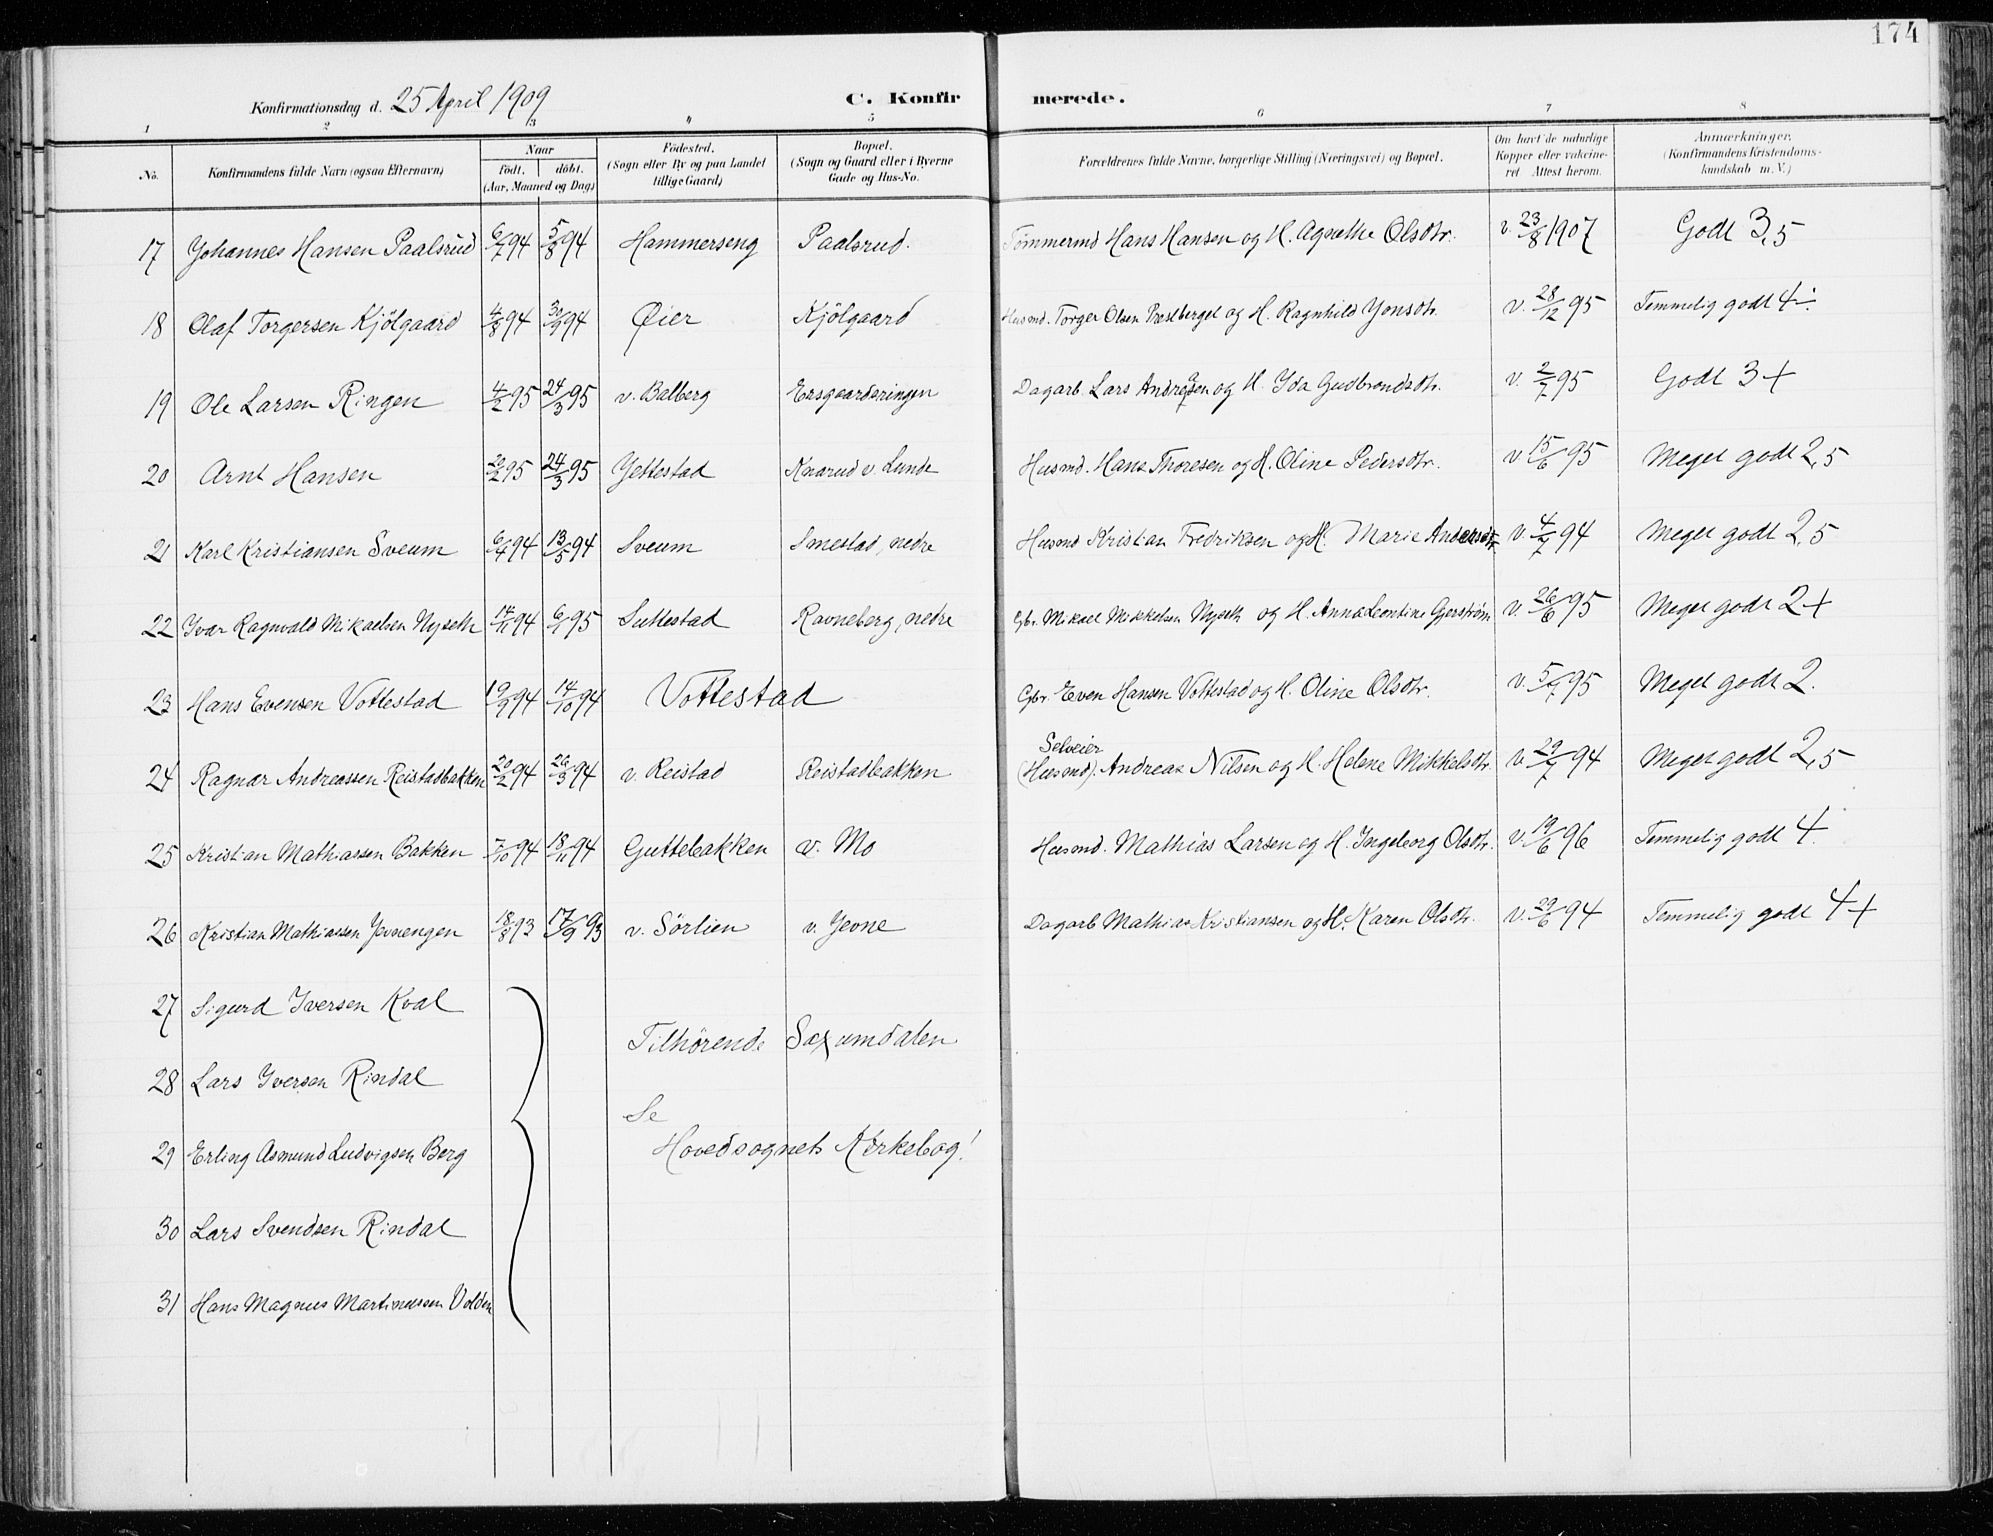 174
Konfirmationsdag d. 25 April 1909 C. Konfirmerede.
1 2 3 " 5 6 7 8
No. Konfirmandens fulde Navn (ogsaa Efternavn) Naar födt. döbt. (Aar, Maaned og Dag) Födested. (Sogn eller By og paa Landet tillige Gaard) Bopæl. (Sogn og Gaard eller i Byerne Gade og Hus-No. Forældrenes fulde Navne, borgerlige Stilling (Næringsvei) og Bopæl. Om havt de naturlige Kopper eller vakcineret. Attest herom. Anmærkninger. (Konfirmandens Kristendomskundskab m. V.)
17 Johannes Hansen Paalsrud 6/7 94 5/8 94 Hammerseng Paalsrud. Tömmermd Hans Hansen og H. Agnethe Olsdtr. v. 23/8 1907 Godt 3,5
18 Olaf Torgersen Kjölgaard 4/8 94 30/9 94 Øier Kjölgaard Husmd. Torger Olsen Præstberget og H. Ragnhild Jonsdtr. v. 28/12 95 Temmelig godt 4÷
19 Ole Larsen Ringen 4/2 95 24/3 95 v. Balberg Ersgaardsringen Dagarb. Lars Andresen og H. Ida Gudbrandsdtr. v. 2/7 95 Godt 3+
20 Arnt Hansen 20/2 95 24/3 95 Jettestad Kaarud v. Lunde Husmd. Hans Thoresen og H. Oline Pedersdtr. v 15/6 95 Meget godt 2,5
21 Karl Kristiansen Sveum 6/4 94 13/5 94 Sveum Smestad, nedre Husmd Kristian Fredriksen og H. Marie Andersdtr v. 4/7 94 Meget godt 2,5
22 Ivar Ragnvald Mikaelsen Nyseth 14/11 94 6/1 95 Suttestad Ravneberg, nedre Gbr. Mikael Mikkelsen Nyseth og H. Anna Leontine Gjerström v. 26/6 95 Meget godt 2+
23 Hans Evensen Vottestad 19/9 94 14/10 94 Vottestad Gbr. Even Hansen Vottestad og H. Oline Olsdtr. v. 5/7 95 Meget godt 2.
24 Ragnar Andreassen Reistadbakken 20/2 94 26/3 94 v. Reistad Reistadbakken Selveier (Husmd). Andreas Nilsen og H. Helene Mikkelsdtr. v. 29/7 94 Meget godt 2,5
25 Kristian Mathiassen Bakken 7/10 94 18/11 94 Guttebakken v. Mo Husmd. Mathias Larsen og H. Ingeborg Olsdtr. v. 19/6 96 Temmelig godt 4.
26 Kristian Mathiassen Jevneengen 18/8 93 17/9 93 v. Sörlien v. Jevne Dagarb Mathias Kristiansen og H. Karen Olsdtr. v. 29/6 94 Temmelig godt 4+
27 Sigurd Iversen Kval
Tilhörende Saxumdalen
28 Lars Iversen Rindal
Se
Hovedsognets Kirkebog!
29 Erling Asmund Ludvigsen Berg
30 Lars Svendsen Rindal
31 Hans Magnus Martinussen Volden